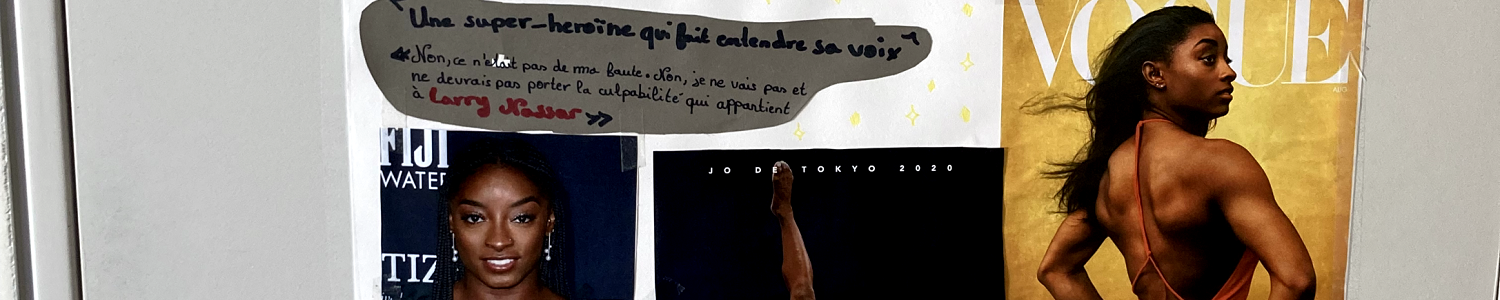 "Une super-heroïne qui fait entendre sa voix"
«Non, ce n'était pas de ma faute. Non, je ne vais pas et
ne devrais pas porter la culpabilité qui appartient
à Larry Nassar »
FIJI
WATER
TIZ
JO DE TOKYO 2020
VOGUE
AUG